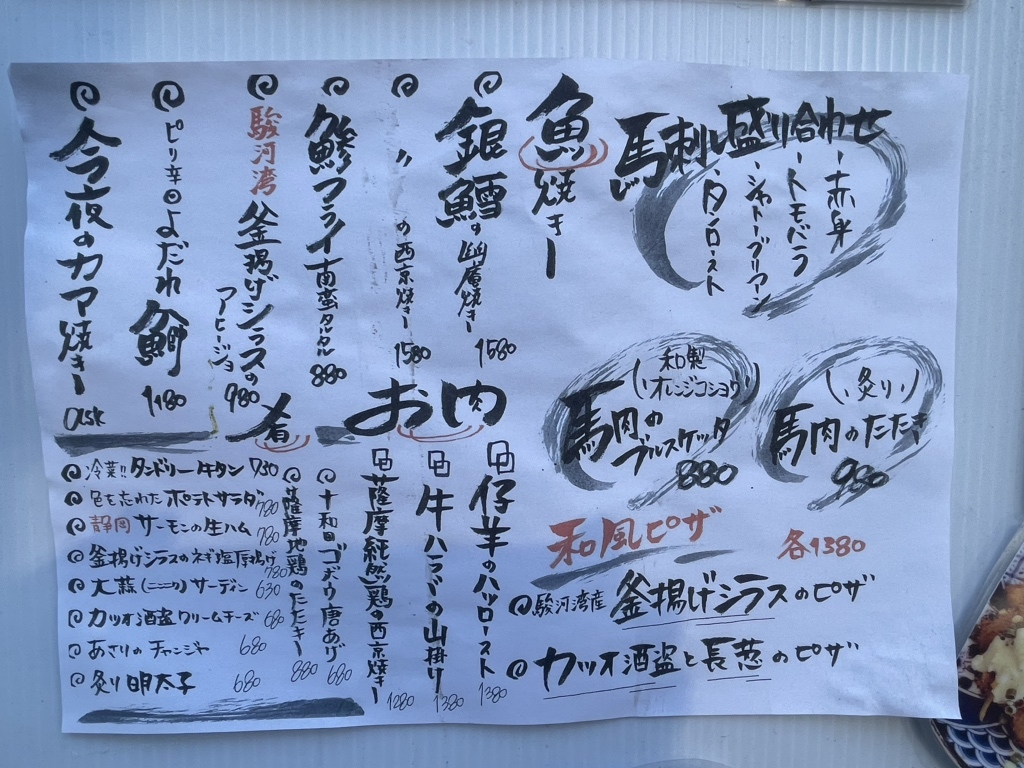 馬刺し盛り合わせ
・赤身
・トモバラ
・シャトーブリアン
・タンロースト
魚焼きー
銀鱈の幽庵焼きー 1580
〃の西京焼きー 1580
鯵フライ南蛮タルタル 880
駿河湾釜揚げシラスの
アヒージョ 980
ピリ辛よだれ鰤 1180
今夜のカマ焼きー ask
(炙り)
馬肉のたたき
980
(和製
オレンジコショウ)
馬肉の
ブルスケッタ
880
和風ピザ 各1380
駿河湾産釜揚げシラスのピザ
カツオ酒盗と長葱のピザ
お肉
仔羊のハツロースト 1380
牛ハラミの山掛け 1380
薩摩純然鶏の西京焼きー 1280
肴
十和田ゴボウ唐あげ 680
薩摩地鶏のたたきー 880
冷菜!!タンドリー牛タン 780
色を忘れたポテトサラダ 780
静岡サーモンの生ハム 780
釜揚げシラスのネギ塩厚揚げ 780
大蒜(ニンニク)サーディン 630
カツオ酒盗クリームチーズ 680
あさりのチャンジャ 680
炙り明太子 680